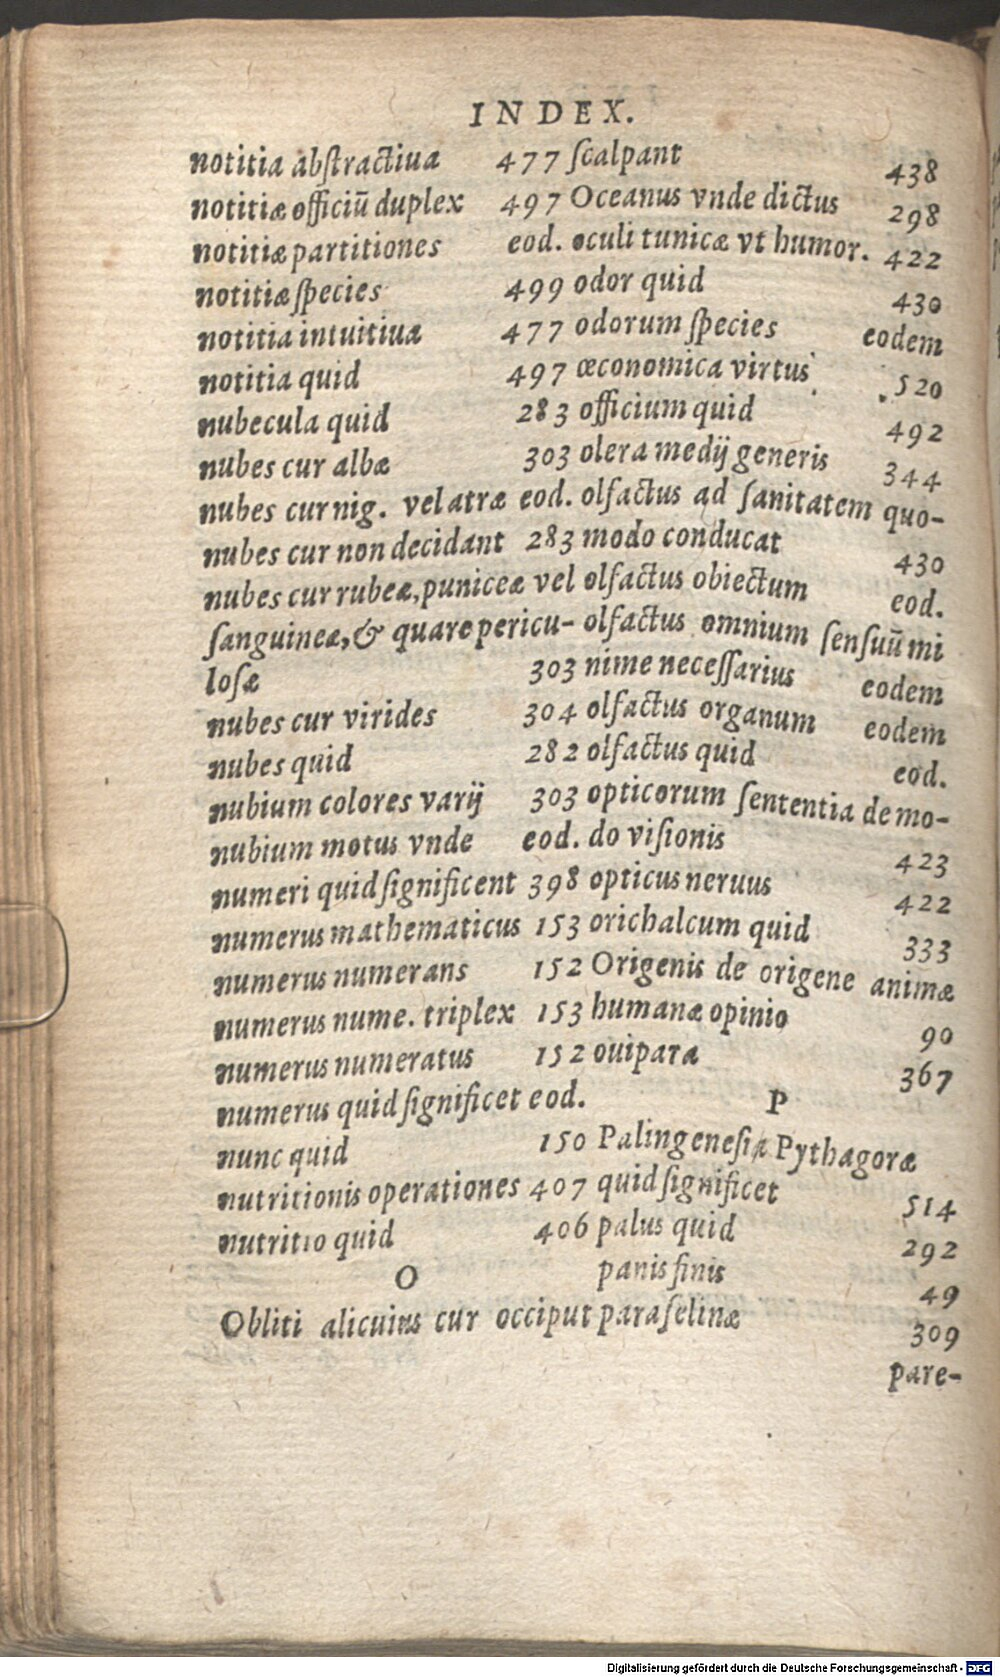 INDEX.
notitia abſtractiua 477
notitiæ officiū duplex 497
notitiæ partitiones eod.
notitiæ ſpecies 499
notitia intuitiua 477
notitia quid 497
nubecula quid 283
nubes cur albæ 303
nubes cur nig. vel atræ eod.
nubes cur non decidant 283
nubes cur rubeæ, puniceæ vel
ſanguineæ, & quare pericu-
loſæ 303
nubes cur virides 304
nubes quid 282
nubium colores varij 303
nubium motus vnde eod.
numeri quid ſignificent 398
numerus mathematicus 153
numerus numerans 152
numerus nume. triplex 153
numerus numeratus 152
numerus quid ſignificet eod.
nunc quid 150
nutritionis operationes 407
nutritio quid 406
O
Obliti alicuius cur occiput
ſcalpant 438
Oceanus vnde dictus 298
oculi tunicæ vt humor. 422
odor quid 430
odorum ſpecies eodem
œconomica virtus 520
officium quid 492
olera medij generis 344
olfactus ad ſanitatem quo-
modo conducat 430
olfactus obiectum eod.
olfactus omnium ſenſuū mi
nime neceſſarius eodem
olfactus organum eodem
olfactus quid eod.
opticorum ſententia de mo-
do viſionis 423
opticus neruus 422
orichalcum quid 333
Origenis de origene animæ
humanæ opinio 90
ouipara 367
P
Palingeneſiæ Pythagoræ
quid ſignificet 514
palus quid 292
panis finis 49
paraſelinæ 309
pare-
Digitalisierung gefördert durch die Deutsche Forschungsgemeinschaft - DFG